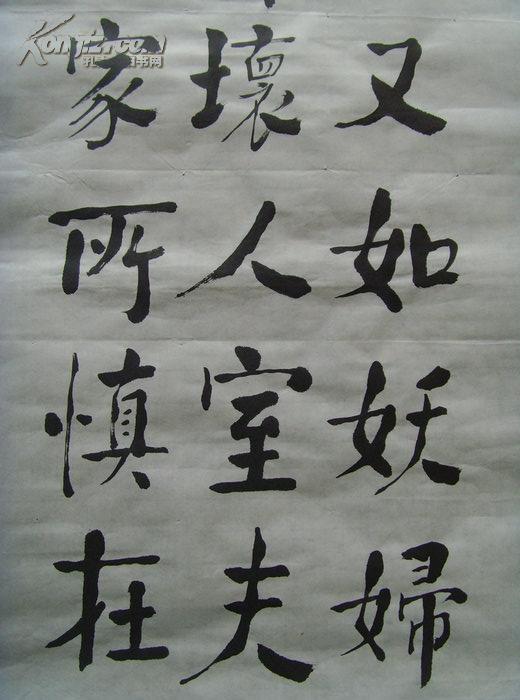 又如妖婦
壞人室夫
家所慎在
Kongfz.com
孔夫子旧书网